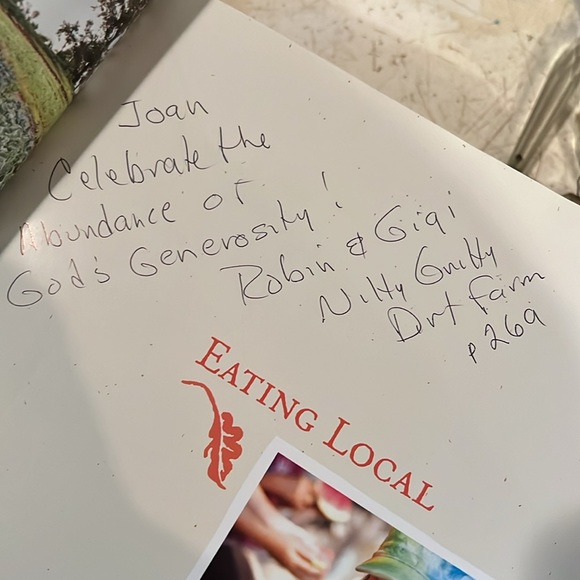 Joan
Celebrate the
Abundance of
God's Generosity!
Robin & Gigi
Nitty Gritty
Dirt Farm
p269
EATING LOCAL